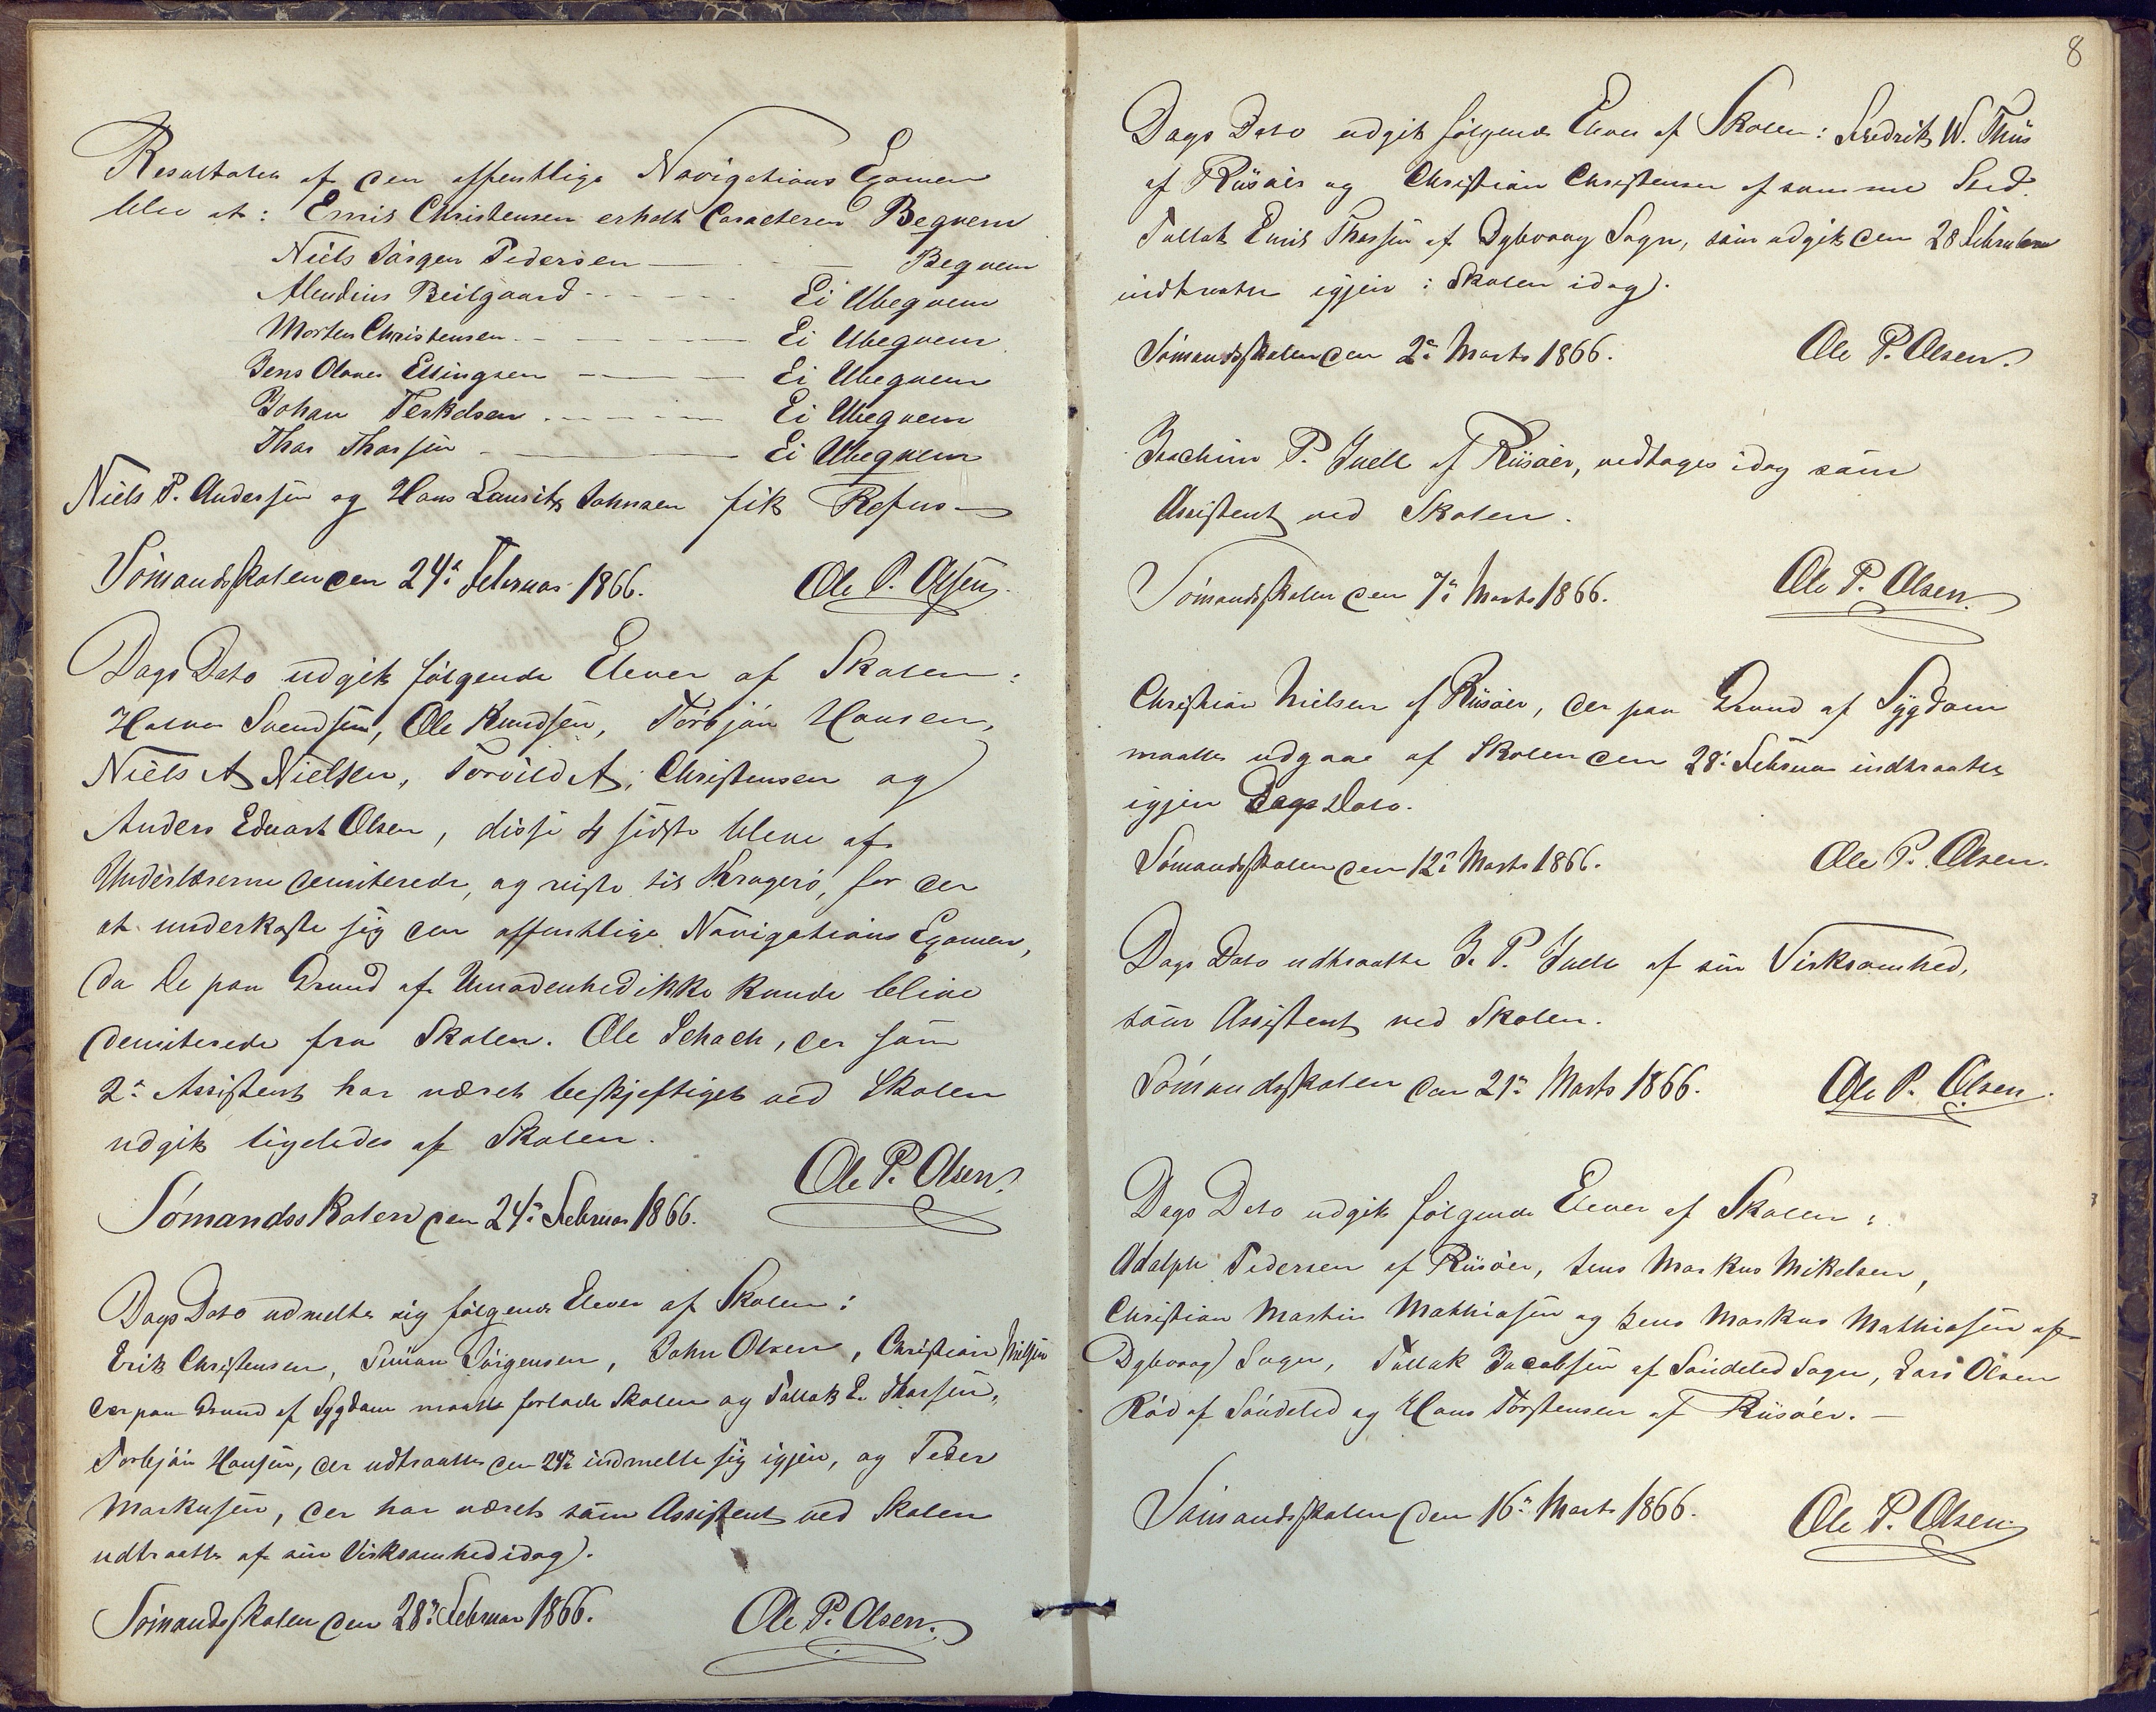 Resultaten af den offentlige Navigations Examen
blev at: Emil Christensen erholt Caracteren Beqvem
Niels Jörgen Pedersen — Beqvem
Beilgaard — Ei Ubeqvem
Morten Christensen — Ei Ubeqvem
Jens Olaves Ellingsen — Ei Ubeqvem
Johan Terkelsen — Ei Ubeqvem
Thor Thorsen — Ei Ubeqvem
Niels P. Andersen og Hans Lauritz Johnsen fik Refus —
Sömandsskolen den 24de Februar 1866. Ole P. Olsen
Dags Dato udgik følgende Elever af Skolen:
Halvor Svendsen, Ole Knudsen, Torbjön Hansen,
Niels A Nielsen, Torvild A. Christensen og
Anders Edvart Olsen, disse 4 sidste bleve af
Underlærerne demiterede, og reiste til Kragerö, for der
at underkaste sig den offentlige Navigations Examen,
da de paa Grund af Umodenhed ikke kunde blive
demiterede fra Skolen. Ole Schach, der som
2den Assistent har været beskjeftiget ved Skolen
udgik ligeledes af Skolen.
Ole P. Olsen
Sömandsskolen den 24de Februar 1866.
Dags Dato udmelte sig følgende Elever af Skolen:
Erik Christensen, Simon Jörgensen, John Olsen, Christian Nielsen
der paa Grund af Sygdom maatte forlade Skolen og Tallak E. Thorsen,
Torbjön Hansen, der udtraatte den 24de indmelte sig igjen, og Peder
Markusen, der har været som Assistent ved Skolen
udtraatte af sin Virksomhed idag.
Sömandsskolen den 28de Februar 1866. Ole P. Olsen.
8
Dags Dato udgik følgende Elever af Skolen: Fredrik W. Thiis
af Riisöer og Christian Christensen af samme Sted.
Tallak Emil Thorsen af Dybvaag Sogn, som udgik den 28 Februar
indtraatte igjen i Skolen idag.
Sömandsskolen den 2den Marts 1866. Ole P. Olsen.
Joachim P. Juell af Riisöer, vedtages idag som
Assistent ved Skolen.
Sömandsskolen den 7de Marts 1866. Ole P. Olsen.
Christian Nielsen af Riisöer, der paa Grund af Sygdom
maatte udgaae af Skolen den 28de Februar indtraatte
igjen Dags Dato.
Sömandsskolen den 12te Marts 1866. Ole P. Olsen.
Dags Dato udtraatte J. P. Juell af sin Virksomhed,
som Assistent ved Skolen.
Sömandsskolen den 21de Marts 1866. Ole P. Olsen.
Dags Dato udgik følgende Elever af Skolen:
Adolph Pedersen af Riisöer, Jens Markus Mikelsen,
Christian Martin Mathiasen og Jens Markus Mathiasen af
Dybvaag Sogn, Tallak Jacobsen af Söndeled Sogn, Lars Olsen
Röd af Söndeled og Hans Torstensen af Riisöer. —
Sömandsskolen den 16de Marts 1866. Ole P. Olsen.